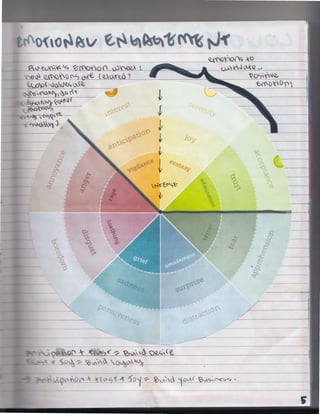 EMOTIONAL ENGAGEMENT
Plutchik's Emotion wheel:
how emotions are related?
emotions to
cultivate..
Positive
emotions
interest
serenity
anticipation
joy
acceptance
vigilance
ecstasy
admiration
trust
INTENSE
annoyance
anger
rage
loathing
disgust
boredom
terror
fear
apprehension
grief
amazement
sadness
surprize
pensiveness
distraction
Anticipation + trust = Build Desire
Trust + Joy = Build loyalty
→ Anticipation + trust + Joy = Build your Business.
5